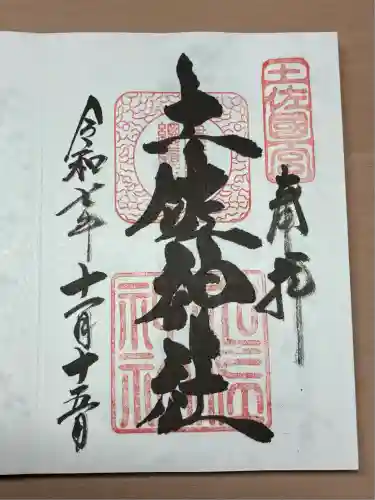 土佐國一宮
奉拝
土佐神社
令和七年十一月十五日